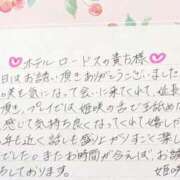 ホテル ロードスの貴方様
日はお誘い頂きありがとうございました
咲を気になって会いに来てくれて、延長
き、プレイでは姫咲の舌で舐め
感じて気持ち良くなってくれて嬉し
年も近く話しも盛り上がりすごく楽し
でした。またお時間が合えば、お誘
ちしております。 姫咲